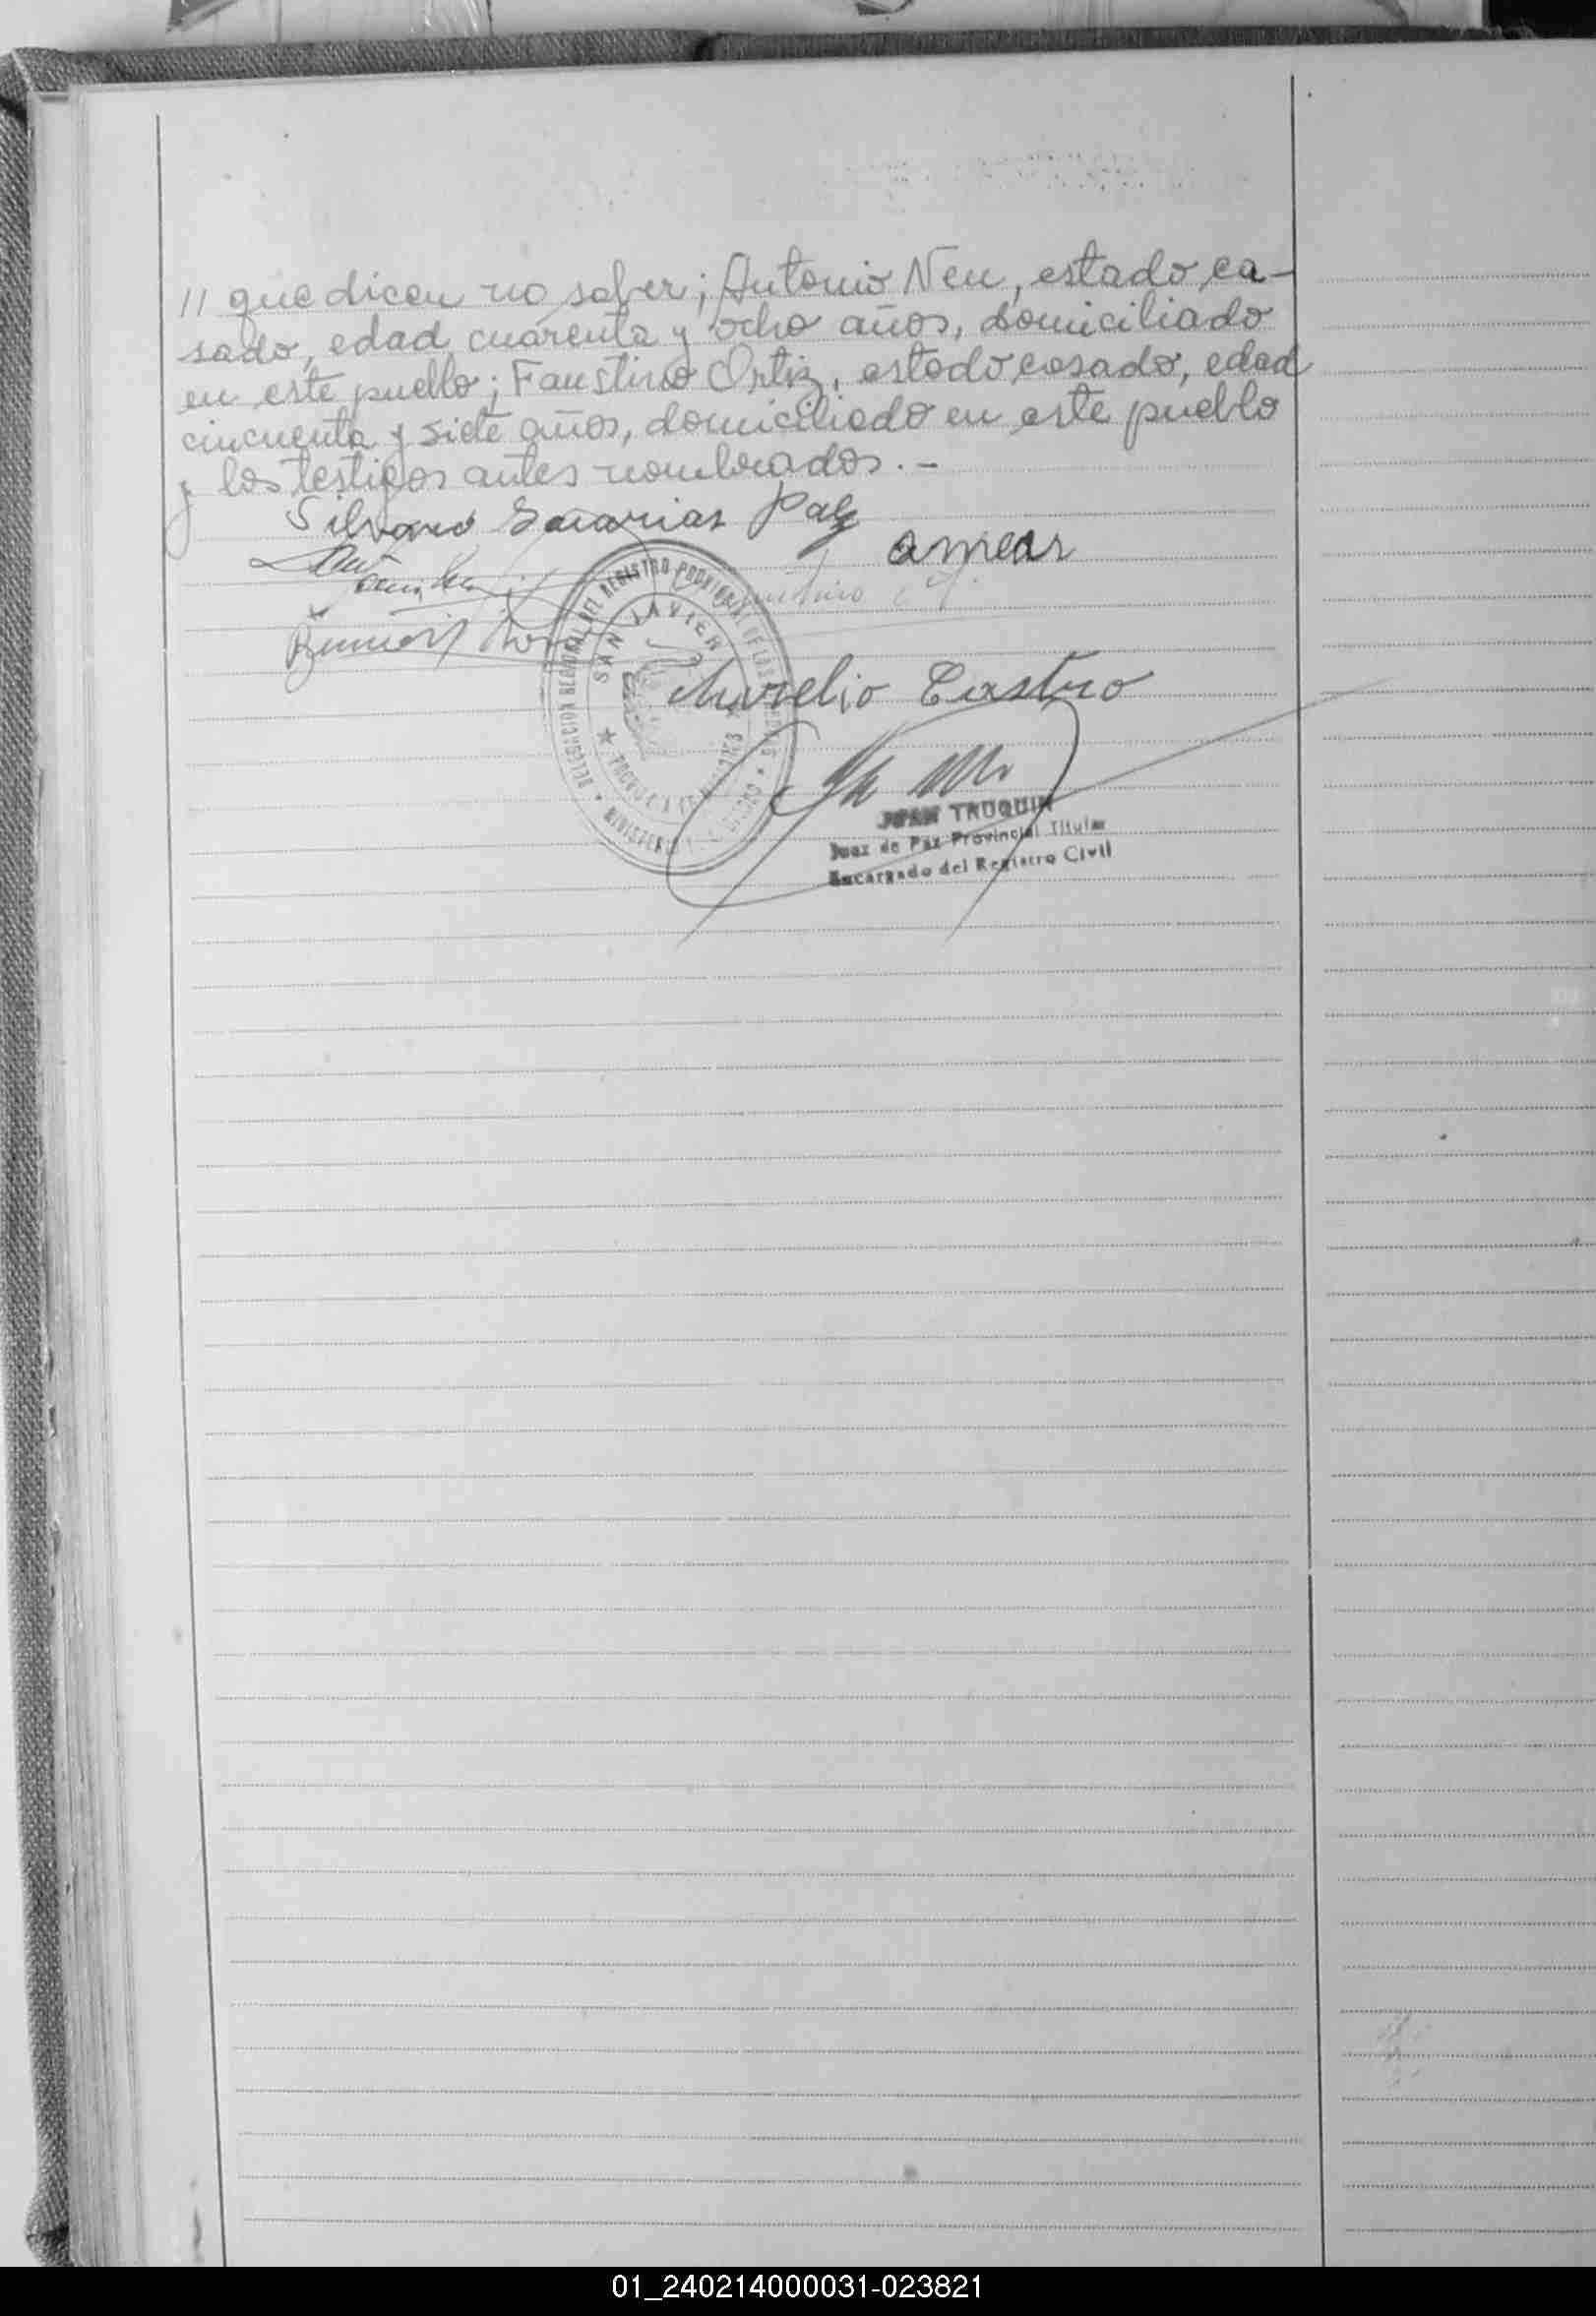 // que dicen no saber; Antonio Neu, estado ca-
sado, edad cuarenta y ocho años, domiciliado
en este pueblo; Faustino Ortiz, estado casado, edad
cincuenta y siete años, domiciliado en este pueblo
y los testigos antes nombrados. -
Silvano Sacarias Paly
DELEGACION REGIONAL DEL REGISTRO PROVINCIAL DE LAS
SAN JAVIER
Aurelio Castro
JUAN TRUQUIN
Juez de Paz Provincial Titular
Encargado del Registro Civil
01_240214000031-023821